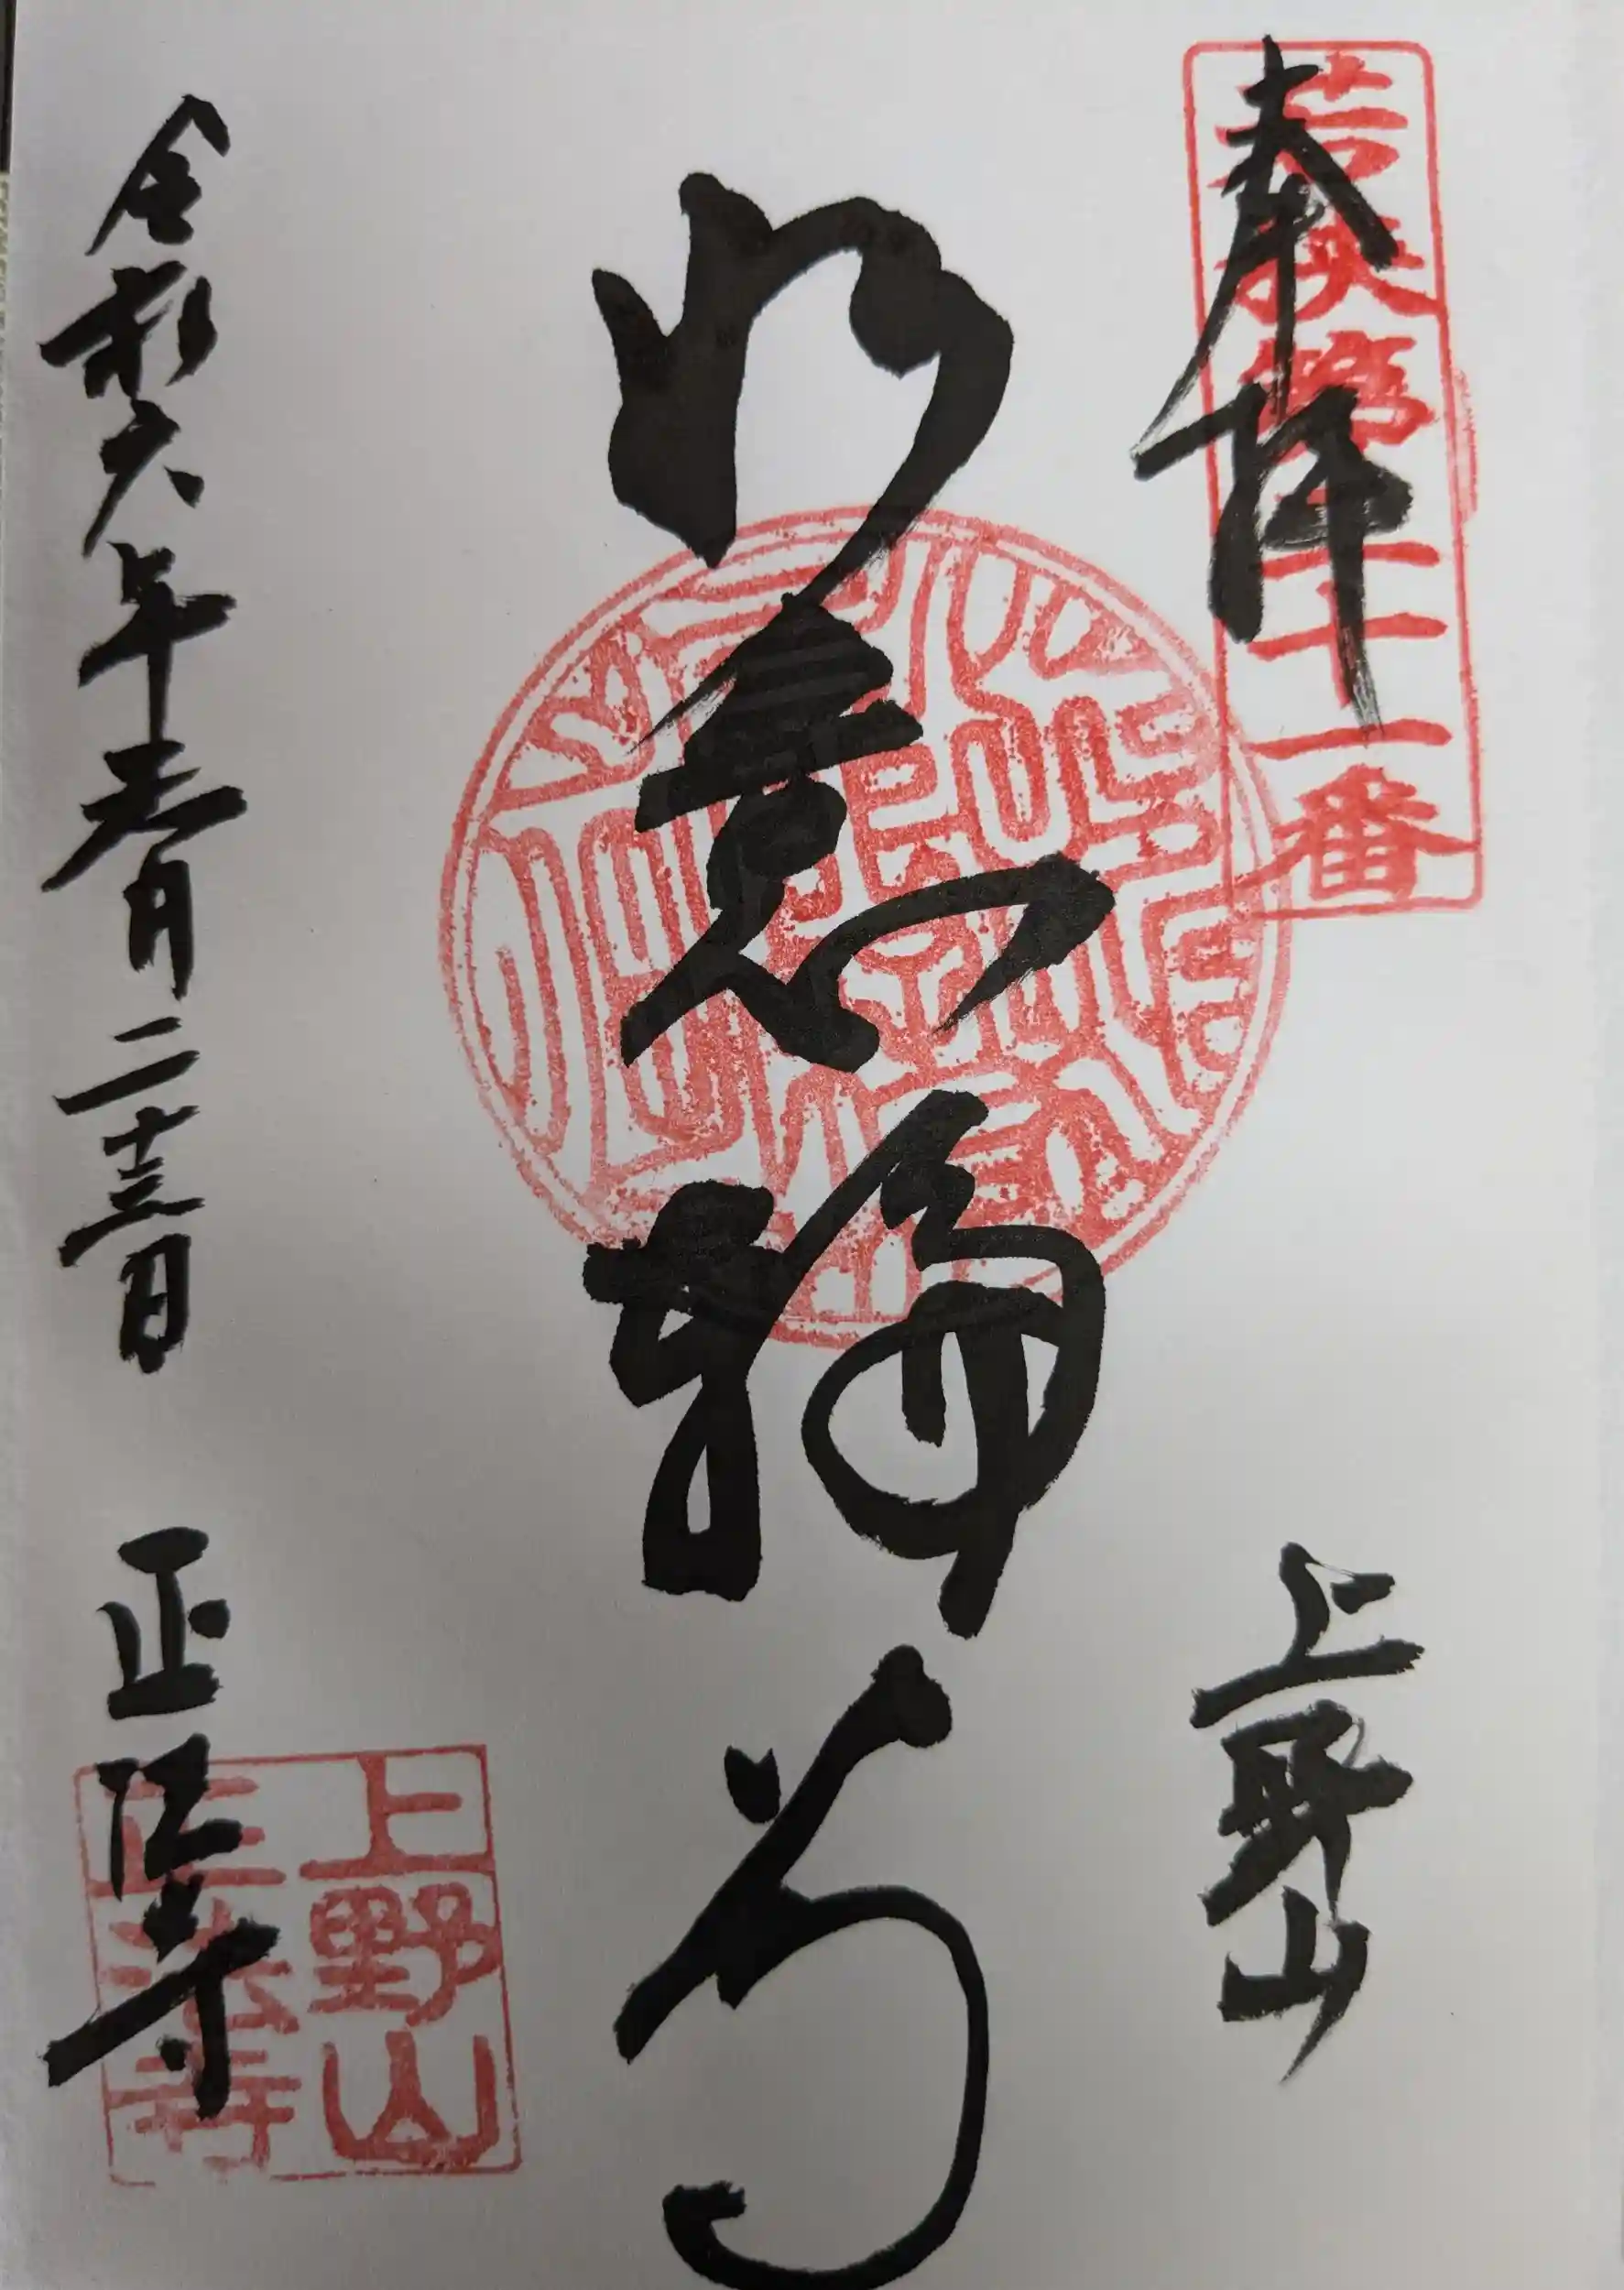 奉拝
若狭第
番
上野山
如意輪尊
令和六年
月二十三日
正法寺
上野山
正法寺